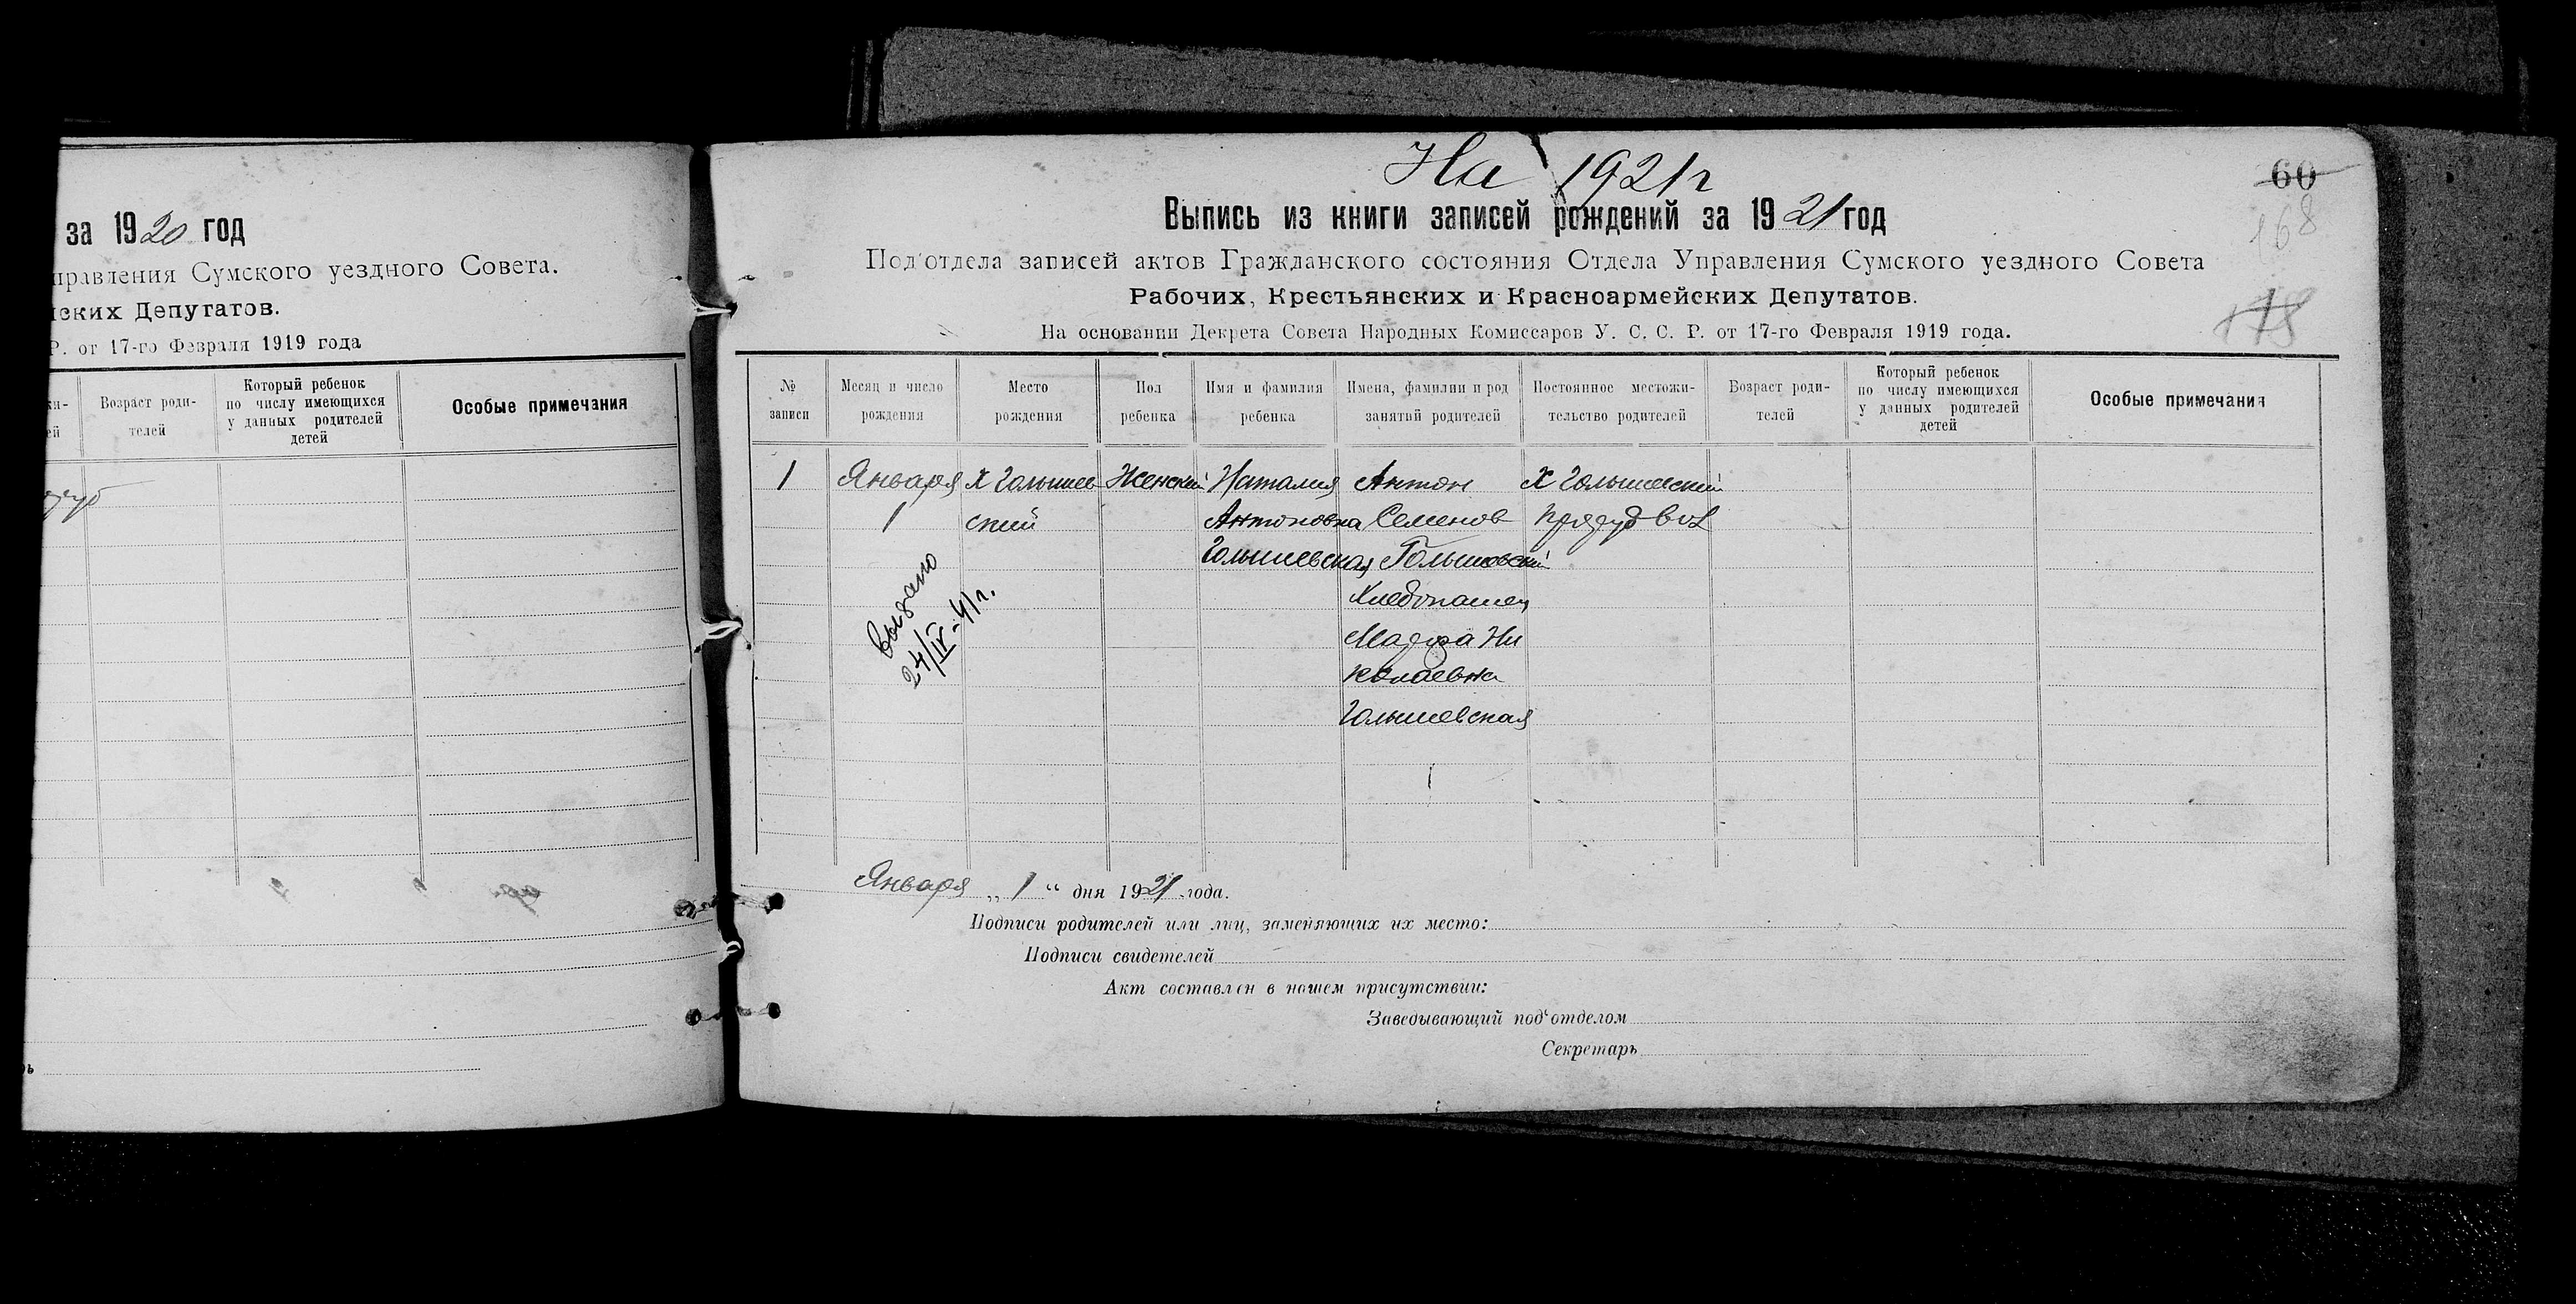 за 1920 год
правления Сумского уездного Совета.
ских Депутатов.
Р. от 17-го Февраля 1919 года
Возраст роди-
телей
Который ребенок
по числу имеющихся
у данных родителей
детей
Особые примечания
На 1921 г
60
168
Выпись из книги записей рождений за 1921 год
Под'отдела записей актов Гражданского состояния Отдела Управления Сумского уездного Совета
Рабочих, Крестьянских и Красноармейских Депутатов.
На основании Декрета Совета Народных Комиссаров У. С. С. Р. от 17-го Февраля 1919 года.
№
записи
Месяц и число
рождения
Место
рождения
Пол
ребенка
Имя и фамилия
ребенка
Имена, фамилии и род
занятий родителей
Постоянное местожи-
тельство родителей
Возраст роди-
телей
Который ребенок
по числу имеющихся
у данных родителей
детей
Особые примечания
1
Января
1
х Голышев
ский
Женский
Наталия
Антоновна
Голышевская
Антон
Семенов
Голышевский
Хлебопашец
Марфа Ни
колаевна
Голышевская
Х Голышевский
вол
выдано
24/IV-41 г.
Января „ 1 “ дня 1921 года.
Подписи родителей или лиц, заменяющих их место:
Подписи свидетелей
Акт составлен в нашем присутствии:
Заведывающий под'отделом
Секретарь